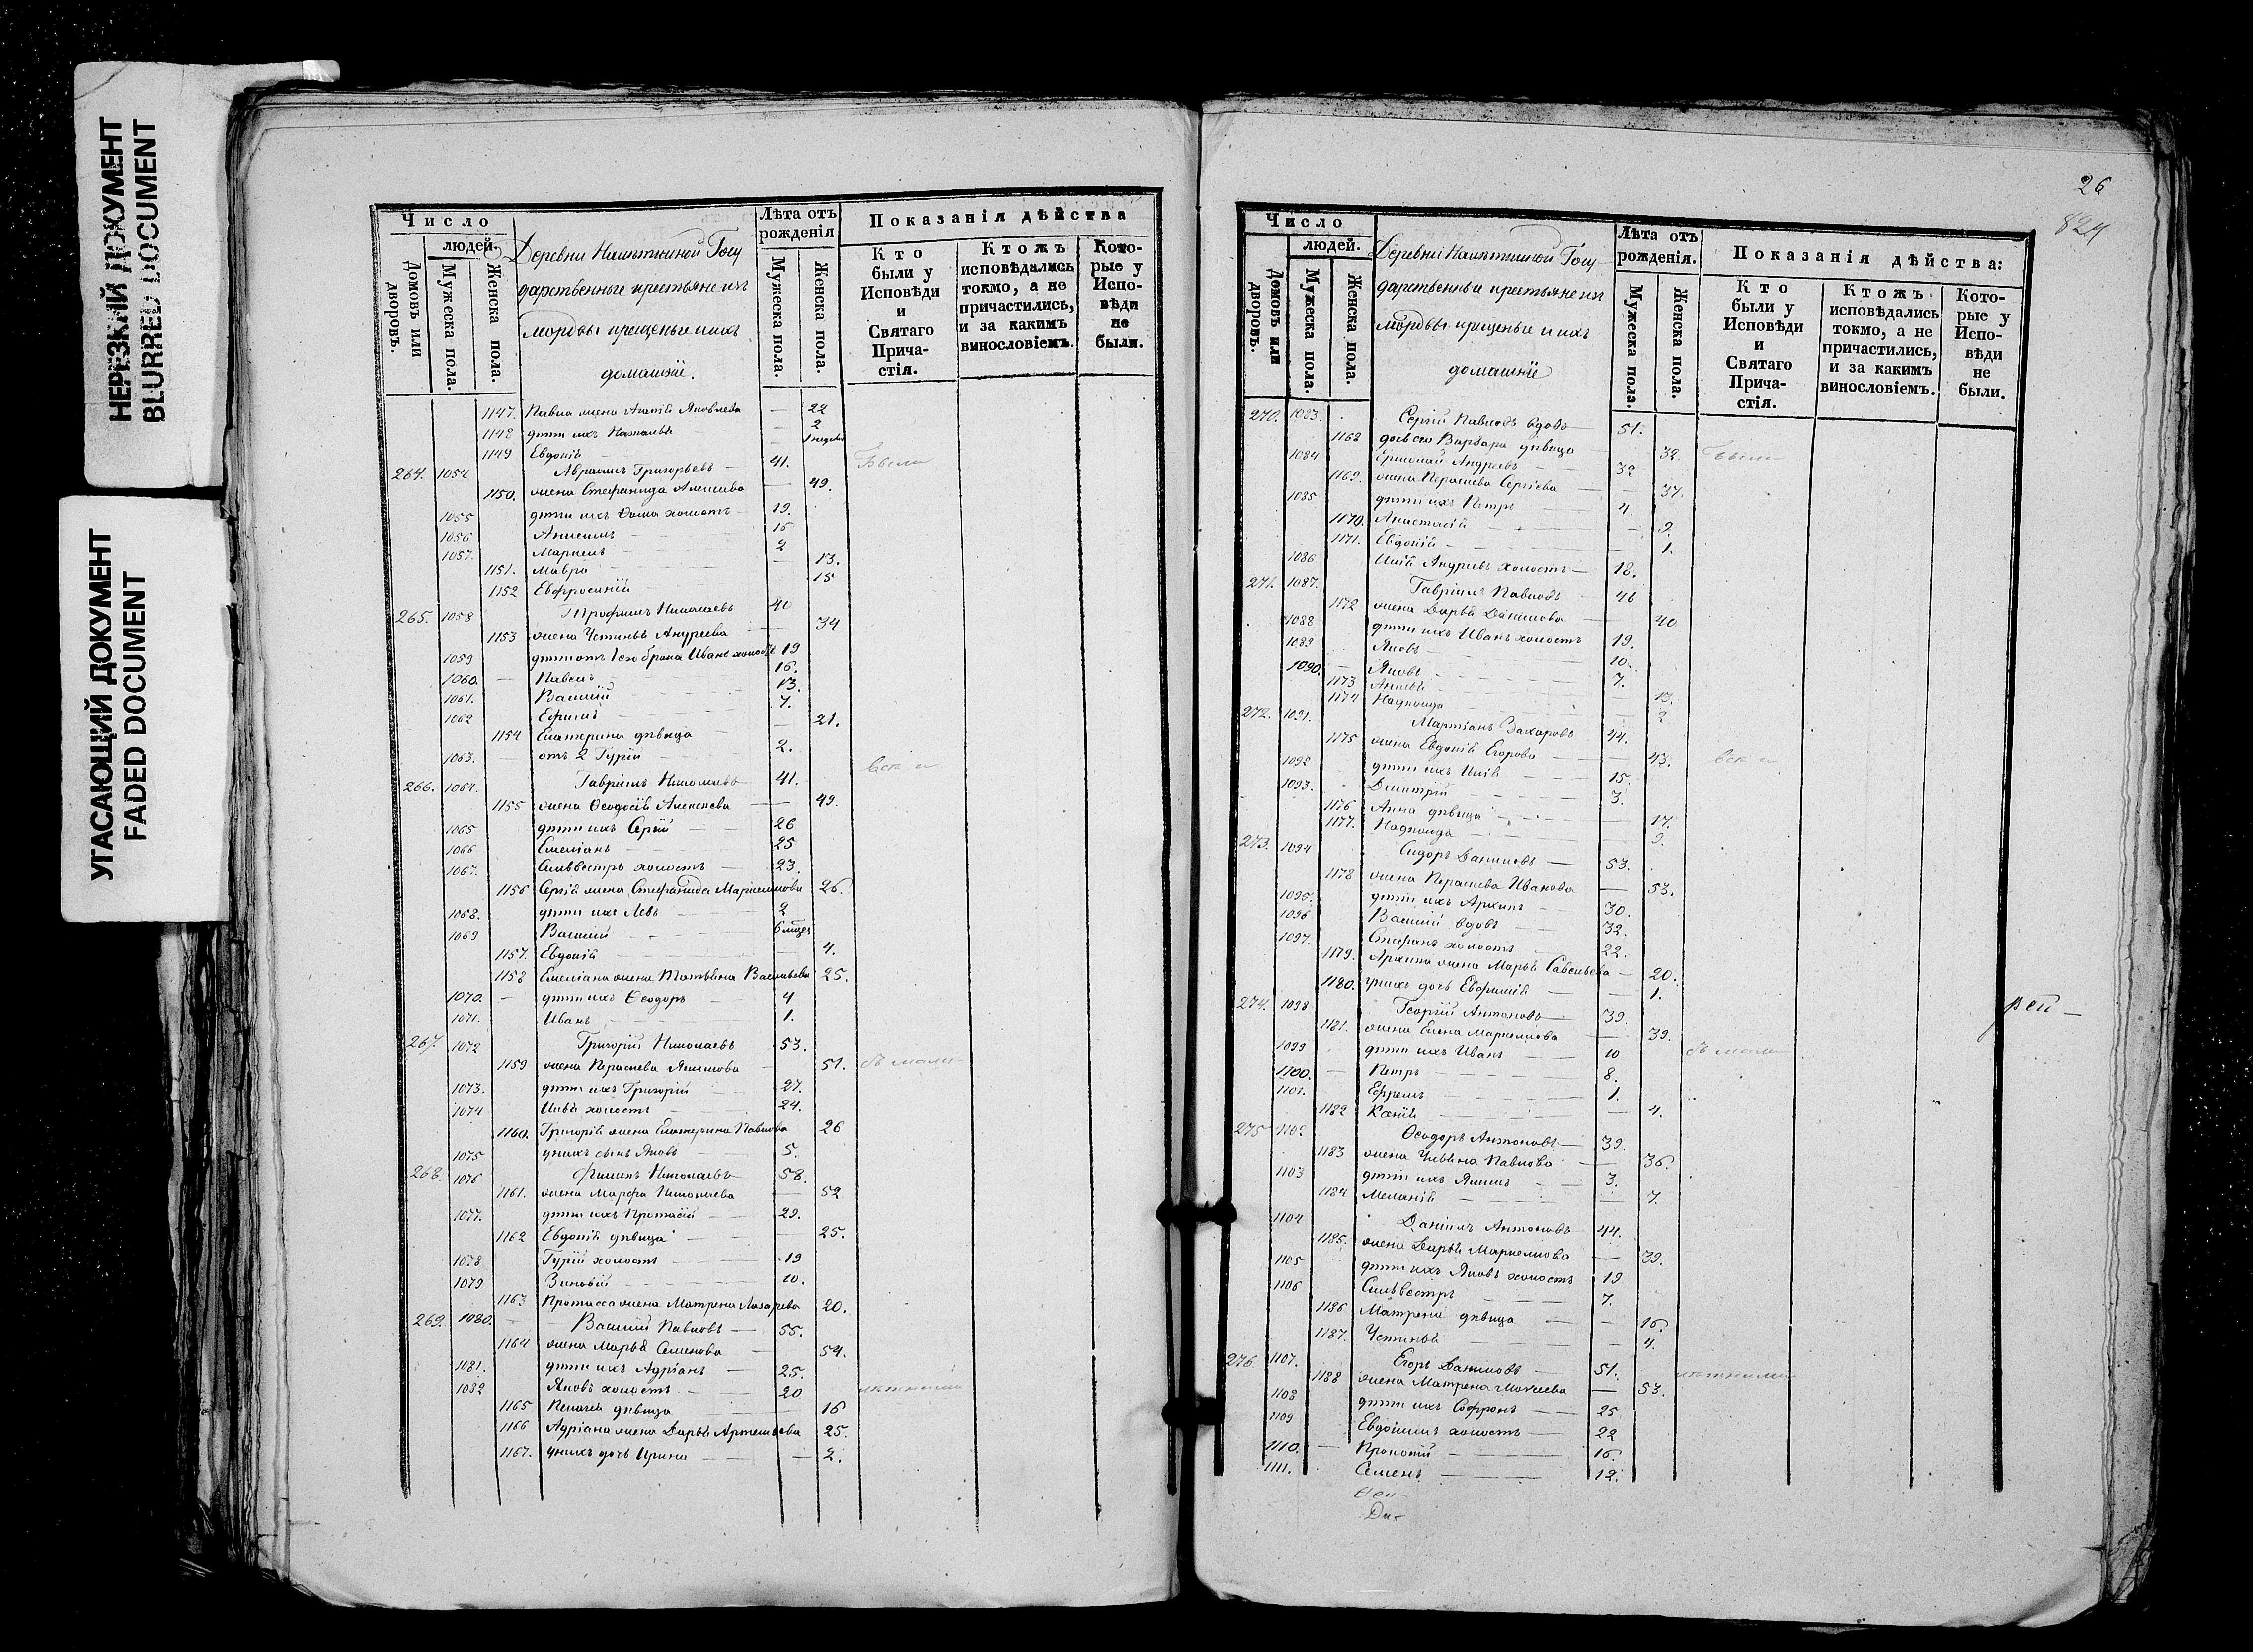 НЕРЕЗКИЙ ДОКУМЕНТ
BLURRED DOCUMENT
УГАСАЮЩИЙ ДОКУМЕНТ
FADED DOCUMENT
Число
людей.
Домовъ или дворовъ.
Мужеска пола.
Женска пола.
Деревни Госу
дарственные крестьяне изъ
мордвы крещеные и ихъ
домашніе.
Лѣта отъ рожденія
Мужеска пола.
Женска пола.
Показанія дѣйства
Кто были у Исповѣди и Святаго Прича- стія.
Ктожъ исповѣдались токмо, а не причастились, и за какимъ винословіемъ.
Кото- рые у Испо- вѣди не были.
1147. Павла жена Яковлева — 22
1148 дѣти ихъ Наталья — 2
1149 Евдокія — 1 недѣл
264. 1054 Авраамъ Григорьевъ — 41. Были
1150. жена Стефанида Алексѣева — 49.
1055 дѣти ихъ Ѳома холостъ — 19.
1056 Анисимъ — 15
1057. Маркелъ — 2
1151. Мавра — 13.
1152 Евфросинія 15
265. 1058 Трофимъ Николаевъ 40
1153 жена Устинья Андреева — 34
1059 дѣти отъ 1го брака Иванъ холостъ 19
1060. — Павелъ 16.
1061. Василій 13.
1062 Ефимъ 7.
1154 Екатерина дѣвица 21.
1063. — отъ 2 Гурій 2.
266. 1064. Гавріилъ Николаевъ 41.
1155 жена Ѳеодосія Алексѣева — 49.
1065 дѣти ихъ Сергій — 26
1066 Емеліанъ — 25
1067. Сильвестръ холостъ — 23.
1156 Сергія жена Стефанида Маркеллова 26.
1068. дѣти ихъ Левъ — 2
1069 Василій 6 мцевъ
1157. Евдокія 4.
1158 Емеліана жена Татьяна Васильева 25.
1070. — дѣти ихъ Ѳеодоръ 4
1071. Иванъ 1.
267. 1072 Григорій Николаевъ 53.
1159 жена Параскева Якимова 51.
1073. дѣти ихъ Григорій 27.
1074 Илья холостъ 24.
1160. Григорія жена Екатерина Павлова 26
1075 у нихъ сынъ Яковъ — 5.
268. 1076 Филипъ Николаевъ 58.
1161. жена Марфа Николаева — 52
1077. дѣти ихъ Протасій — 29.
1162 Евдокія дѣвица 25.
1078 Гурій холостъ 19
1079 Зиновій 10.
1163 Протасса жена Матрена Лазарева 20.
269. 1080. — Василій Павловъ — 55.
1164 жена Марья Семенова — 54.
1081. дѣти ихъ Адріанъ — 25.
1082 Яковъ холостъ — 20
1165 Пелагея дѣвица 16
1166 Адріана жена Дарья Артемьева 25.
1167. у нихъ дочь Ирина — 2.
26
824
Число
людей.
Домовъ или дворовъ.
Мужеска пола.
Женска пола.
Деревни Госу
дарственные крестьяне изъ
мордвы крещеные и ихъ
домашніе
Лѣта отъ рожденія.
Мужеска пола.
Женска пола.
Показанія дѣйства:
Кто были у Исповѣди и Святаго Прича- стія.
Ктожъ исповѣдались токмо, а не причастились, и за какимъ винословіемъ.
Кото- рые у Испо- вѣди не были.
270. 1083. Сергій Павловъ вдовъ — 51.
1168 дочь его Варвара дѣвица — 32. Были
1084 Андреевъ — 32
1169. жена Параскева Сергіева — 37.
1085 дѣти ихъ Петръ 4.
1170. Анастасія — 9.
1171. Евдокія — 1.
1086 Илія Андреевъ холостъ — 18.
271. 1087. Гавріилъ Павловъ 46
1172 жена Дарья Данилова — 40
1088 дѣти ихъ Иванъ холостъ 19.
1089 Яковъ 10.
1090. — Яковъ 7.
1173 13.
1174 Надежда 2
272. 1091. Мартіанъ Захаровъ 44.
1175 жена Евдокія Егорова — 43.
1092 дѣти ихъ Илія 15
1093. Димитрій 3.
1176 Анна дѣвица 17.
1177. Надежда 9.
273. 1094 Сидоръ Даниловъ — 53.
1178 жена Параскева Иванова — 53.
1095. дѣти ихъ Архипъ — 30.
1096 Василій вдовъ 32.
1097. Стефанъ холостъ 22.
1179. Архипа жена Марья Савельева — 20.
1180. у нихъ дочь Евфимія — 1.
274. 1098 Георгій Антоновъ 39.
1181. жена Елена Маркеллова — 39.
1099 дѣти ихъ Иванъ 10
1100. — Петръ 8.
1101. Ефремъ 1.
1182 Ксенія — 4.
275 1102 Ѳеодоръ Антоновъ — 39.
1183 жена Ульяна Павлова 36.
1103 дѣти ихъ Якимъ 3.
1184 Меланія — 7.
1104 Даніилъ Антоновъ 44.
1185. жена Дарья Маркеллова — 39.
1105 дѣти ихъ Яковъ холостъ 19
1106 Сильвестръ 7.
1186 Матрена дѣвица 16.
1187. Устинья — 4.
276. 1107. Егоръ Даниловъ — 51.
1188 жена Матрена — 53.
1108 дѣти ихъ Софронъ — 25
1109 Евдокимъ холостъ — 22
1110. — Прокопій 16.
1111. Семенъ 12.
рей —